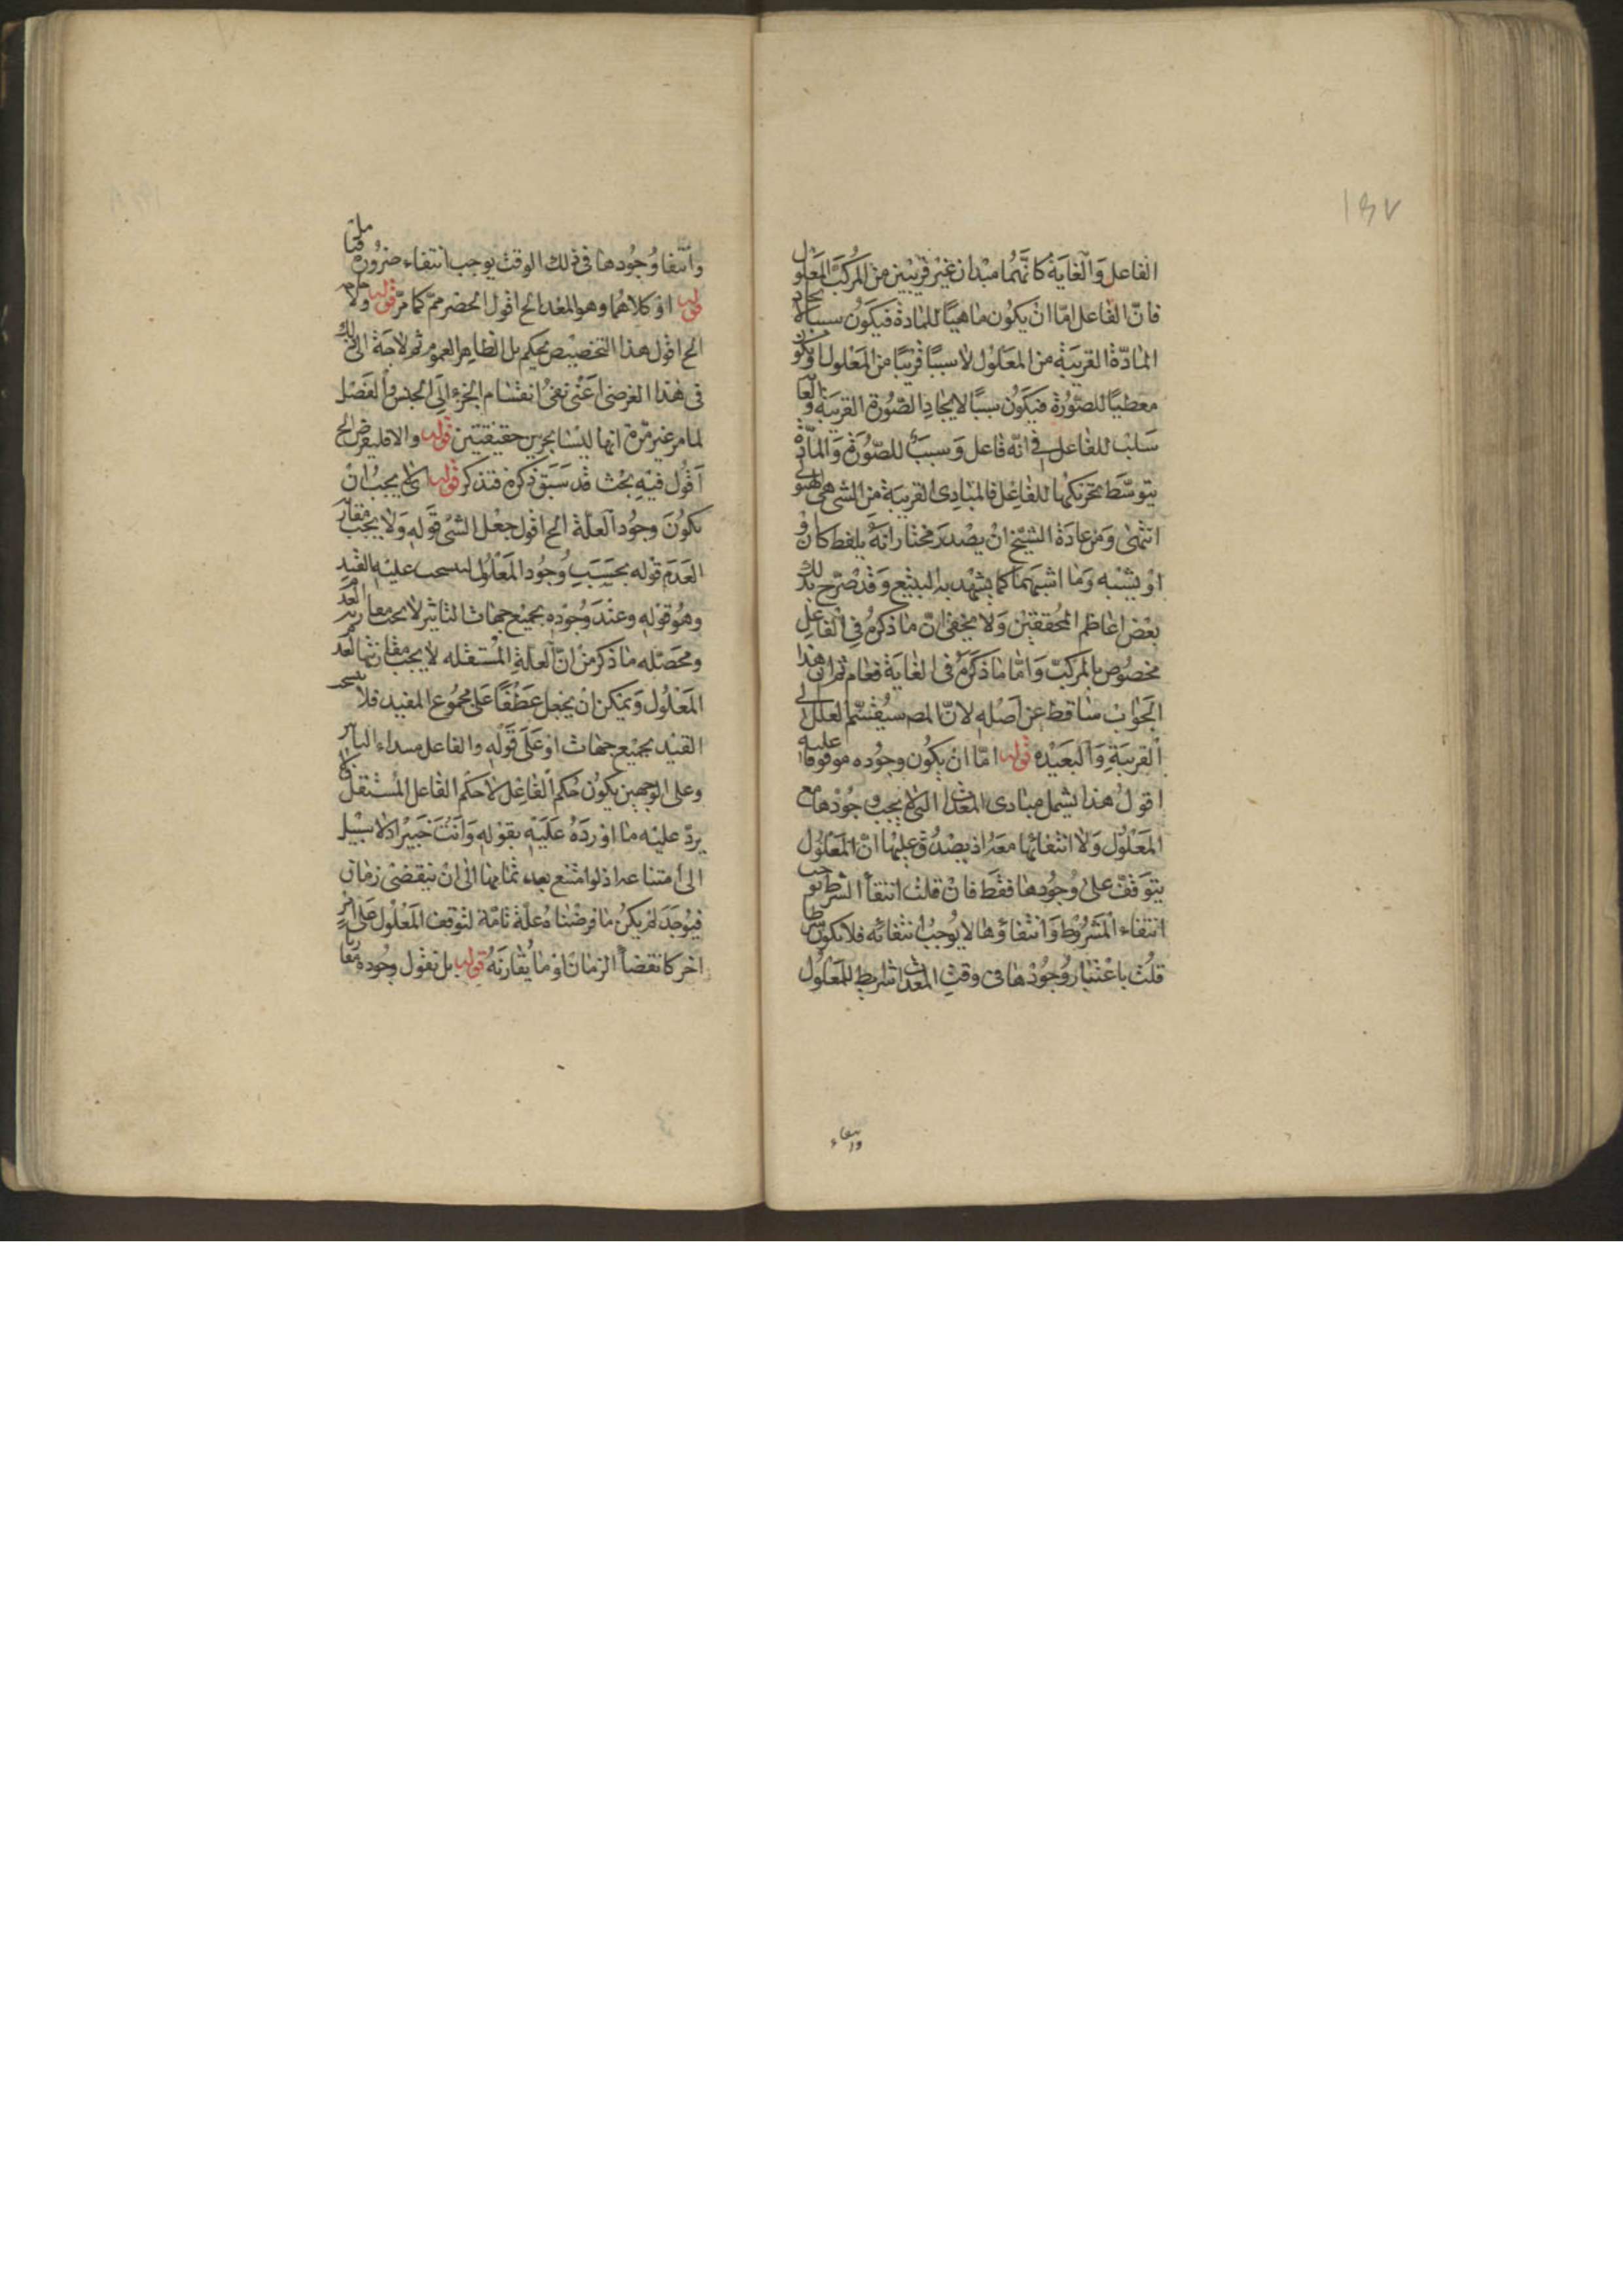 ١٥٧
الفاعل والغاية كانهما مبدان غير قريبين من المركب المعلول
فان الفاعل اما ان يكون ماهيئا للمادة فيكون سببا لايجاد
المادة القريبة من المعلول لا سببا قريبا من المعلول او يكون
معطيا للصورة فيكون سببا لايجاد الصورة القريبة والغا
سبب للفاعل في انه فاعل وسبب للصورة والمادة
بتوسط تحريكها للفاعل فالمبادى القريبة من الشى هى الهيولى
انتهى ومن عادة الشيخ ان يصدر مختاراته بلفظ كان
او يشبه وما اشبههما كما يشهد به التتبع وقد صرح بذلك
بعض اعاظم المحققين ولا يخفى ان ما ذكره فى الفاعل
مخصوص بالمركب واما ما ذكره فى الغاية فعام ثم ان هذا
الجواب ساقط عن اصله لان المصـ سيقسم العلل الى
القريبة والبعيدة قوله اما ان يكون وجوده موقوفا عليه
اقول هذا يشمل مبادى المعدات التى لا يجب وجودها مع
المعلول ولا انتفائها معه اذ يصدق عليها ان المعلول
يتوقف على وجودها فقط فان قلت انتفاء الشرط يوجب
انتفاء المشروط وانتفاؤها لا يوجب انتفائه فلا يكون شرطا
قلت باعتبار وجودها فى وقت المعدات شرايط للمعلول
وانتفاء
وانتفا وجودها فى ذلك الوقت يوجب انتفاء ضرورة
قوله او كلاهما وهو المعد الخ اقول الحضر مم كما مر قوله ولا
الخ اقول هذا التخصيص تحكم بل الظاهر العموم ثم لا حاجة الى ذلك
فى هذا الغرض اعنى نفى انقسام الجزء الى الجنس والفصل
لما مر غير مرة انها ليسا بجزين حقيقيتين قوله والا فليفرض الخ
اقول فيه بحث قد سبق ذكره فتذكر قوله لا يجب ان
يكون وجود العلة الخ اقول جعل الشى قوله ولا يجب مقارنة
العدم قوله بحسب وجود المعلول لينسحب عليه القيد
وهو قوله وعند وجوده بجميع جهات التاثير لا يجب مقارنة العدم
ومحصله ما ذكر من ان العلة المستقله لا يجب مقارنتها لعدم
المعلول ويمكن ان يجعل عطفا على مجموع المقيد فلا ينسحب
القيد بجميع جهات او على قوله والفاعل مبداء التاثير
وعلى الوجهين يكون حكم الفاعل لا حكم الفاعل المستقل
يرد عليه ما اورده عليه بقوله وانت خبير اذ لا سبيل
الى امتناعه اذ لو امتنع بعد تمامها الى ان ينقضى زمان
فيوجد لم يكن ما فرضناه علة تامة لتوقف المعلول على امر
اخر كانقضاء الزمان او ما يقارنه قوله بل نقول وجوده